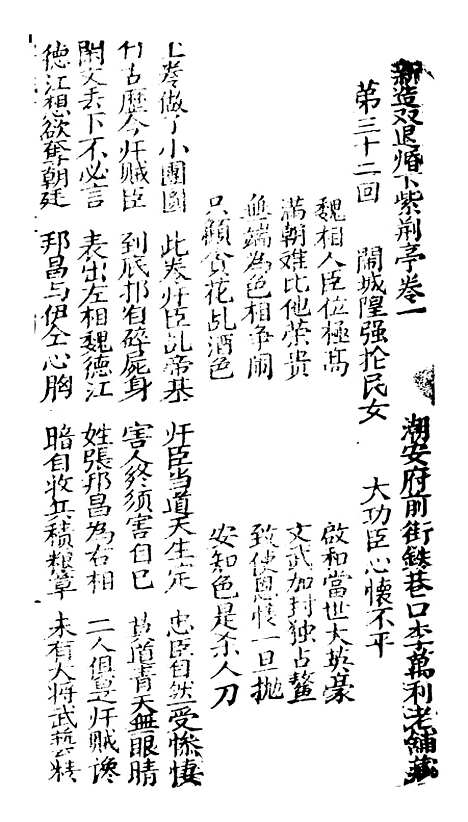 新造双退婚下紫荆亭卷一 潮安府前街鉄巷口李萬利老舖藏
第三十二回 鬧城隍强抢民女 大功臣心懷不平
魏相人臣位極髙 啟和當世大英豪
滿朝难比他荣貴 文武加封独占鳌
無端為色相争鬧 致使恩情一旦抛
只顧貪花乱酒色 安知色是杀人刀
上卷做了小團圓 此卷奸臣乱帝基 奸臣当道天生定 忠臣自然受惨悽
古歷今奸賊臣 到底邦自碎屍身 害人终须害自己 莫道青天無眼睛
閑文丢下不必言 表出左相魏德江 姓張邦昌為右相 二人俱是奸賊谗
德江想欲奪朝廷 邦昌与伊仝心胸 暗自收兵積粮草 未有大将武藝精